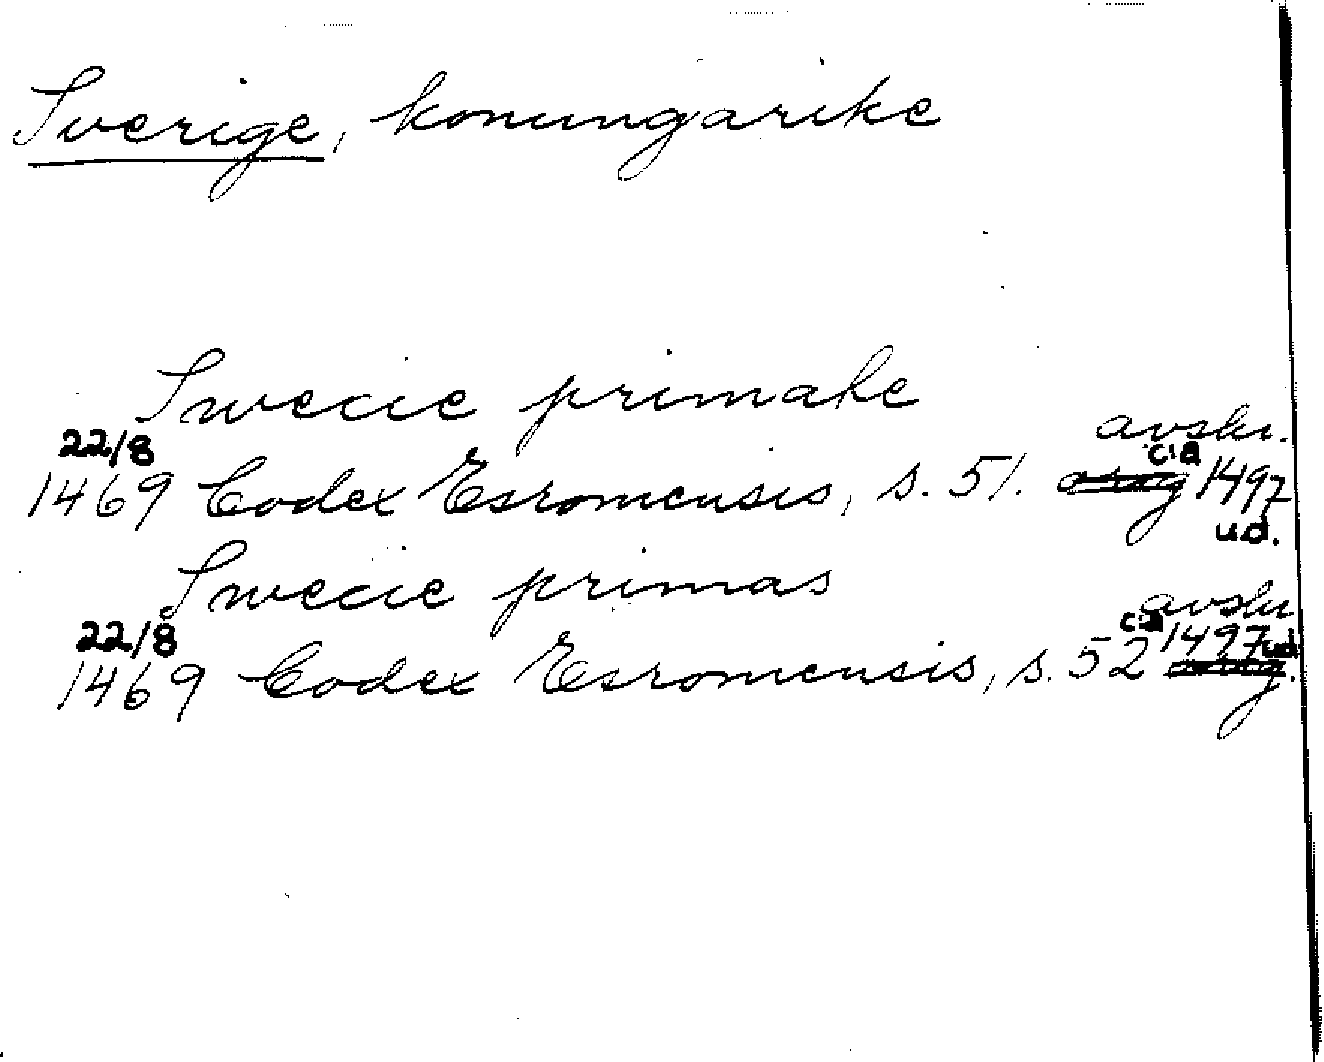 Sverige, konungarike
Swecie primate
22/8 avskr.
1469 Codex Esromensis, s. 51. orig c:a 1497
u.d.
Swecie primas
22/8 avskr
1469 Codex Esromensis, s. 52 c:a 1497 u.d.
orig.